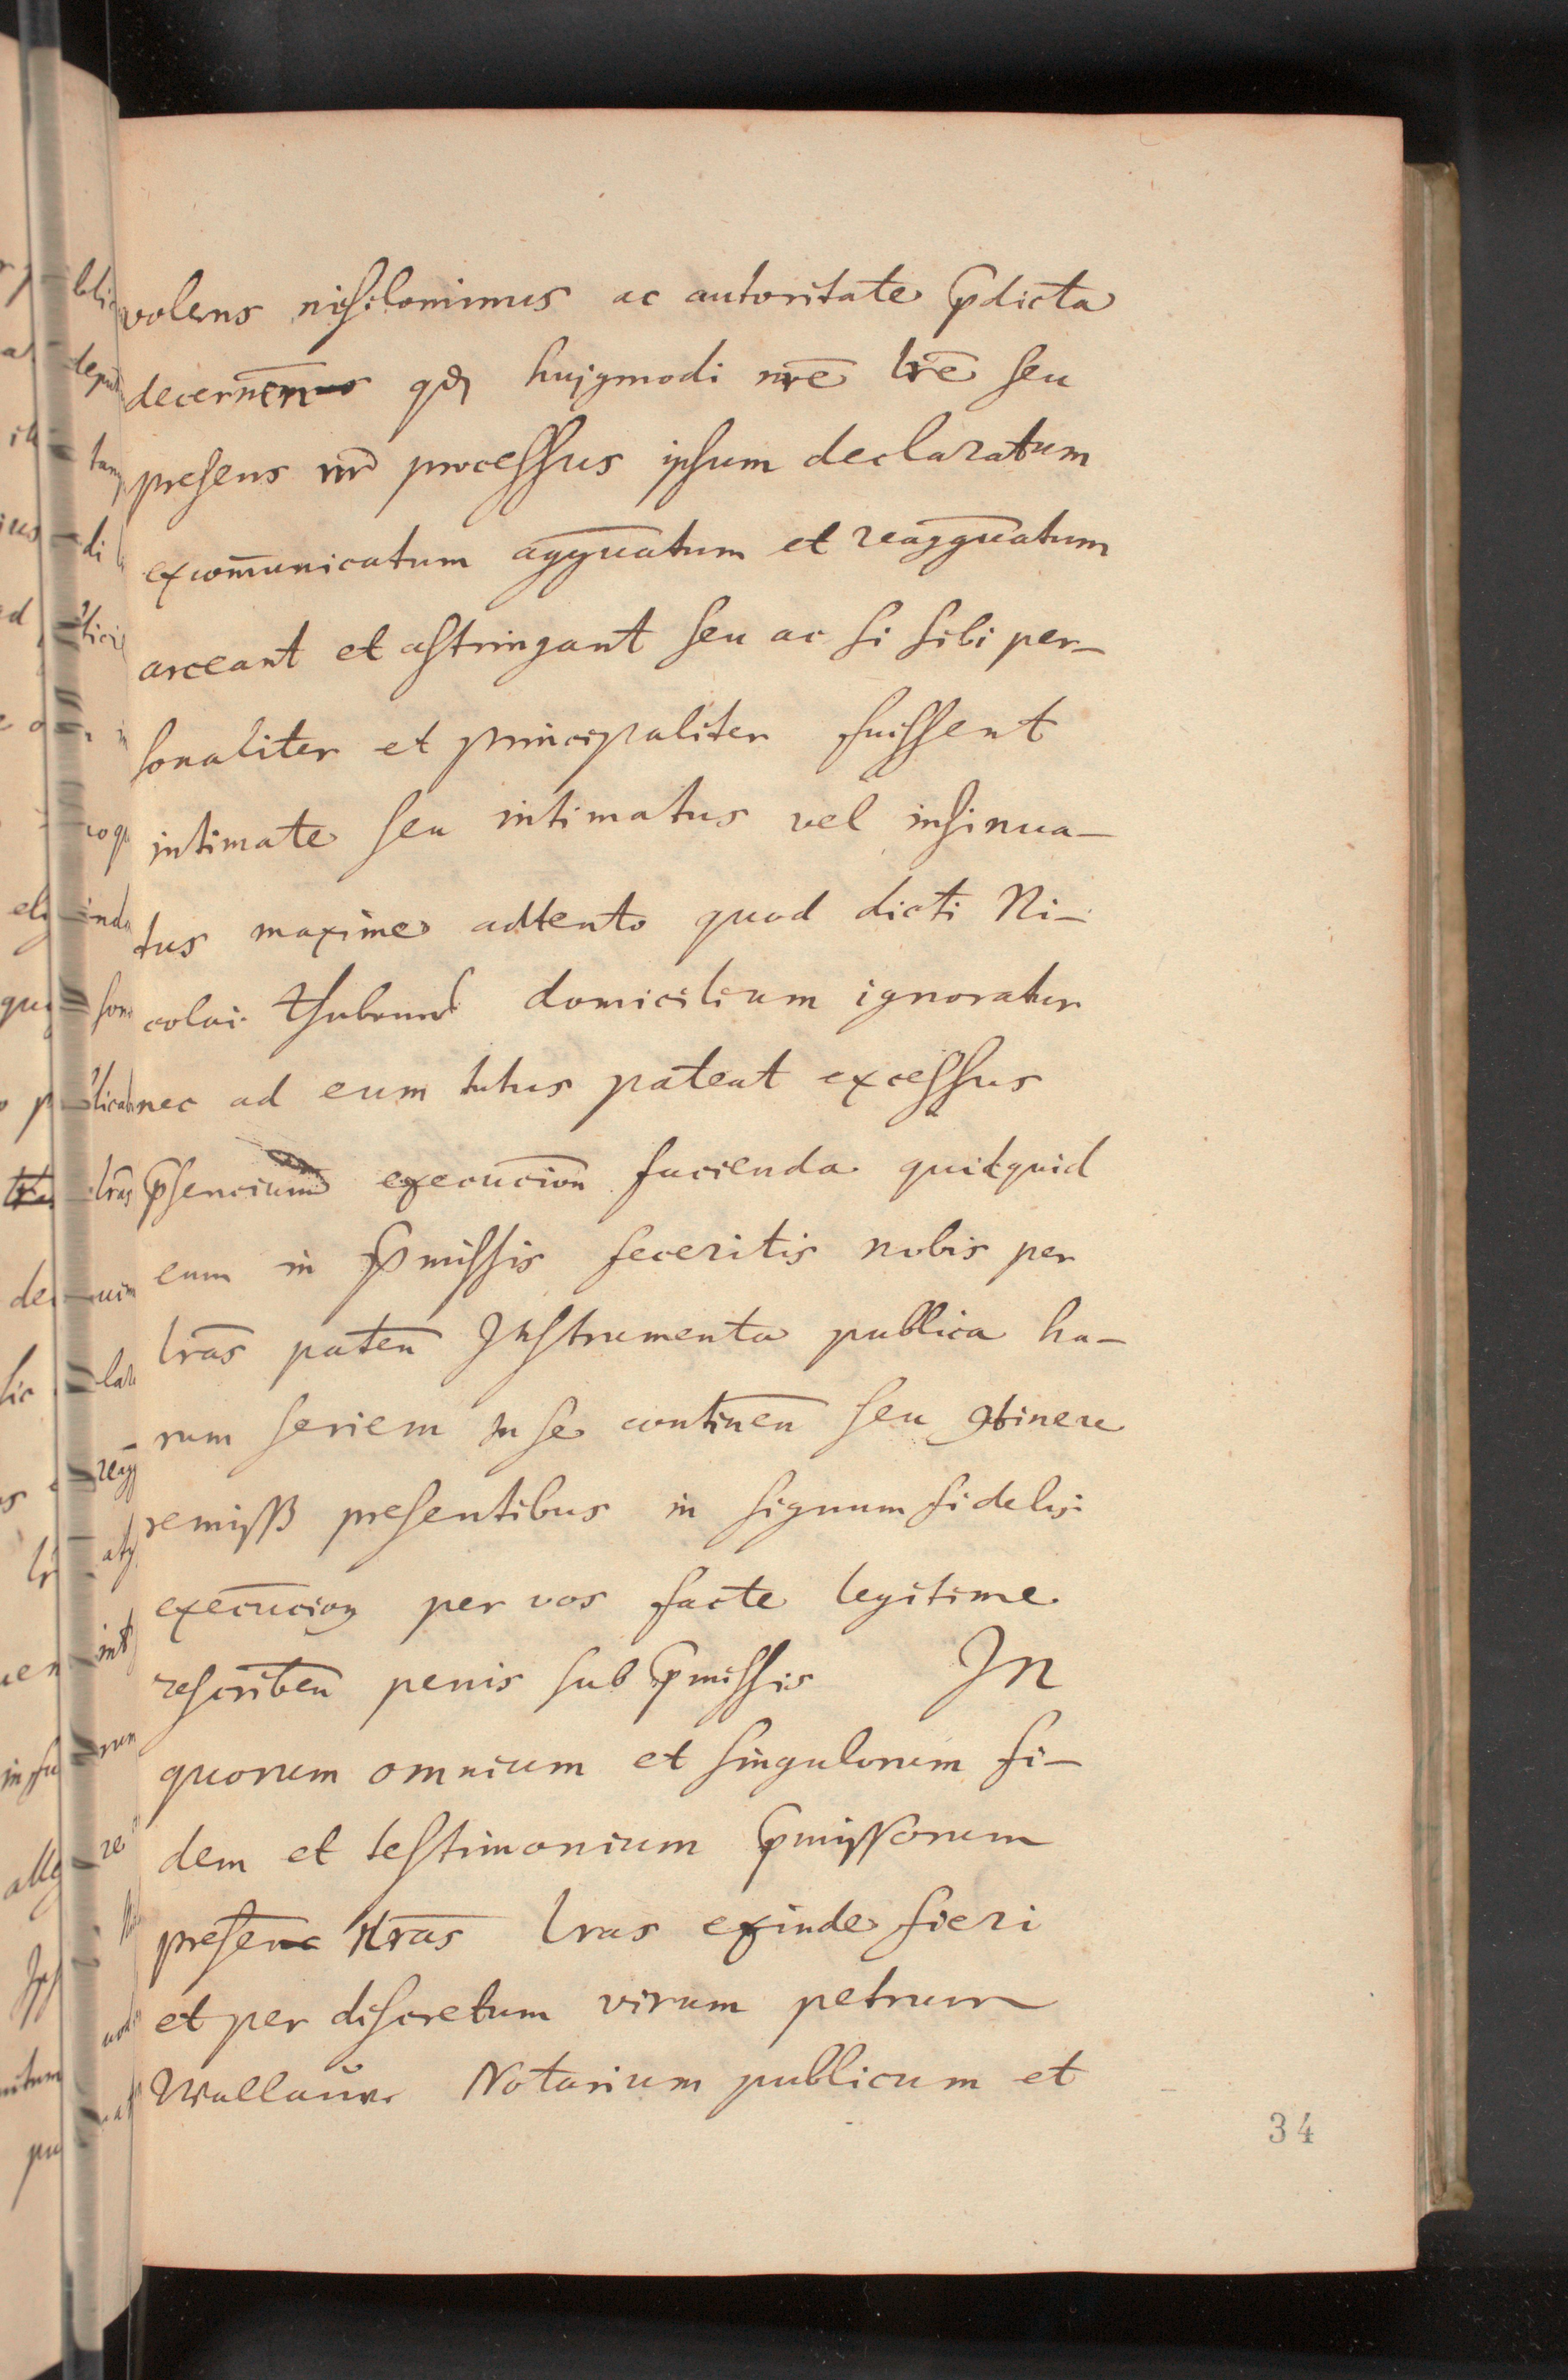 volens nihilominus ac autoritate p̄dicta
decernen̄ qđ hujgmodi nrē lrē seu
presens nr̄ processus ipsum declaratum
excom̄unicatum aggūatum et reaggūatum
arceant et astringant seu ac si sibi per-
sonaliter et principaliter fuissent
intimate seu intimatus vel insinua-
tus maxime adtento quod dicti Ni-
colai domicilium ignoratur
nec ad eum tutus pateat excessus
p̄sencium execucion̄ facienda quidquid
eum in p̄missis feceritis nobis per
lrās paten̄ Instrumenta publica ha-
rum seriem in se continen̄ seu ꝯtinere
remissß presentibus in signum fidelis
execūcion per vos facte legitime
rescriben̄ penis sub p̄missis In
quorum omnium et singulorum fi-
dem et testimonium p̄missorum
presen̄ nrās lras exinde fieri
et per discretum virum petrum
Wallaŭr Notarium publicum et
34